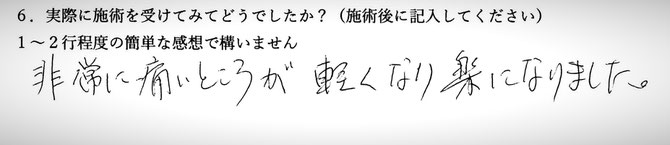 6．実際に施術を受けてみてどうでしたか？（施術後に記入してください）
1～2行程度の簡単な感想で構いません
非常に痛いところが 軽くなり 楽になりました。